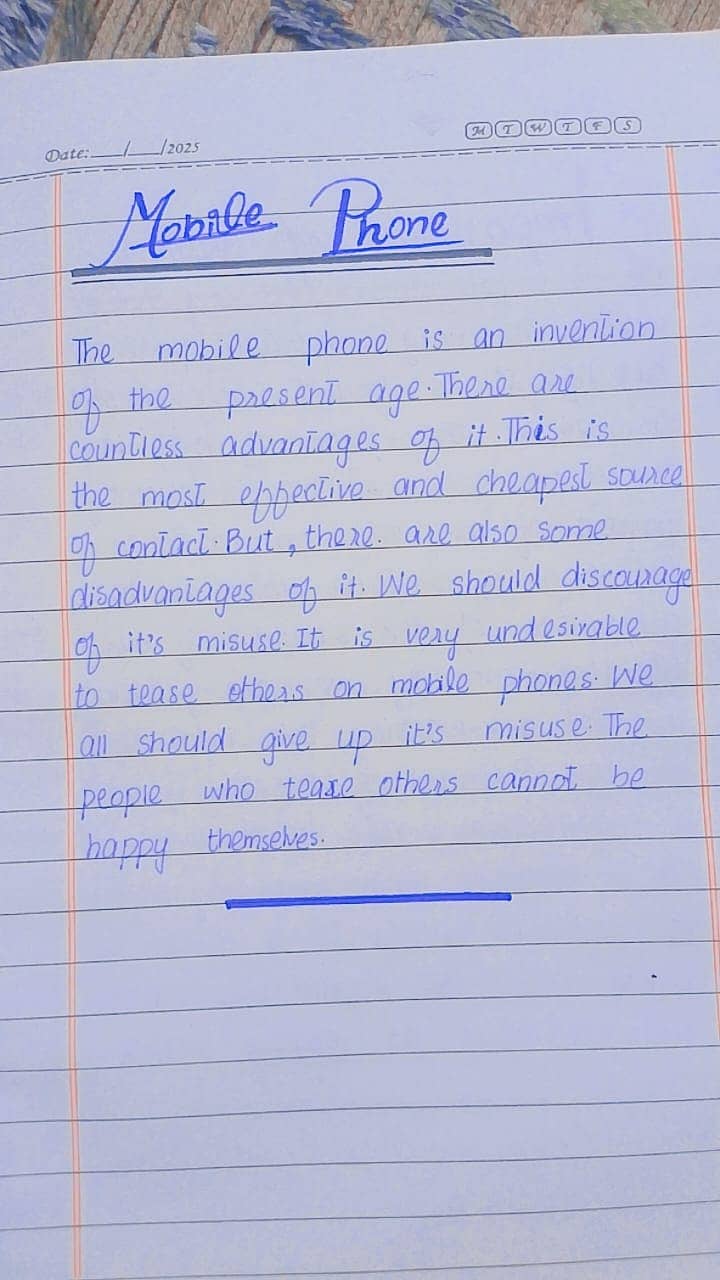 M T W T F S
Date:___/___/2025
Mobile Phone
The mobile phone is an invention
of the present age. There are
countless advantages of it. This is
the most effective and cheapest source
of contact. But, there. are also some
disadvantages of it. We should discourage
of it's misuse. It is very undesirable
to tease others on mobile phones. We
all should give up it's misuse. The
people who tease others cannot be
happy themselves.